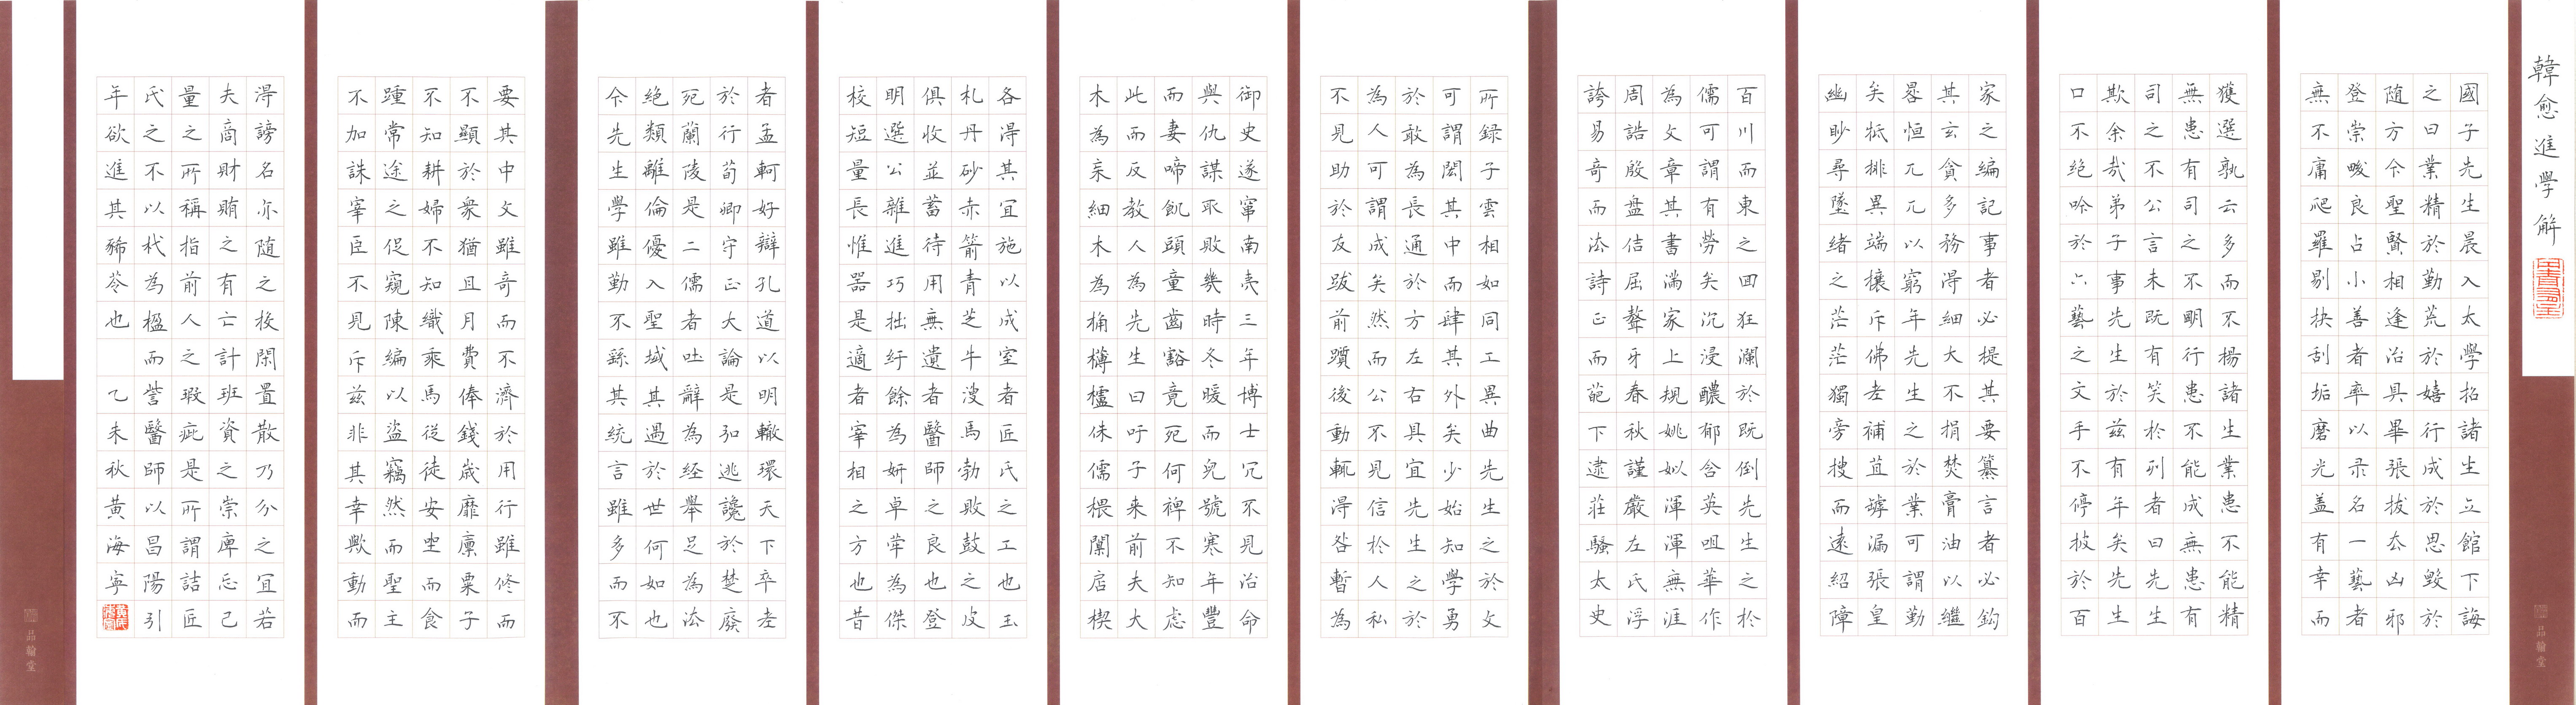 韓愈進學解
國子先生晨入太學招諸生立館下誨
之曰業精於勤荒於嬉行成於思毀於
随方今聖賢相逢治具畢張拔去凶邪
登崇畯良占小善者率以录名一藝者
無不庸爬羅剔抉刮垢磨光盖有幸而
獲選孰云多而不揚諸生業患不能精
無患有司之不明行患不能成無患有
司之不公言未既有笑於列者曰先生
欺余哉弟子事先生於兹有年矣先生
口不絕吟於六藝之文手不停披於百
家之編記事者必提其要纂言者必鈎
其玄貪多務得細大不捐焚膏油以繼
晷恒兀兀以窮年先生之於業可謂勤
矣牴排異端攘斥佛老補苴罅漏張皇
幽眇尋墜緒之茫茫獨旁搜而遠紹障
百川而東之回狂瀾於既倒先生之於
儒可謂有勞矣沉浸醲郁含英咀華作
為文章其書滿家上規姚姒渾渾無涯
周誥殷盤佶屈聱牙春秋謹嚴左氏浮
誇易奇而法詩正而葩下逮莊騷太史
所録子雲相如同工異曲先生之於文
可謂閎其中而肆其外矣少始知學勇
於敢為長通於方左右具宜先生之於
為人可謂成矣然而公不見信於人私
不見助於友跋前躓後動輒得咎暫為
御史遂竄南夷三年博士冗不見治命
與仇謀取敗幾時冬暖而兒號寒年豐
而妻啼飢頭童齒豁竟死何裨不知慮
此而反教人為先生曰吁子来前夫大
木為杗細木為桷欂櫨侏儒椳闑扂楔
各得其宜施以成室者匠氏之工也玉
札丹砂赤箭青芝牛溲馬勃敗鼓之皮
俱收並蓄待用無遺者醫師之良也登
明選公雜進巧拙紆餘為妍卓犖為傑
校短量長惟器是適者宰相之方也昔
者孟軻好辯孔道以明轍環天下卒老
於行荀卿守正大論是弘逃讒於楚廢
死蘭陵是二儒者吐辭為経舉足為法
絕類離倫優入聖域其遇於世何如也
今先生學雖勤不繇其統言雖多而不
要其中文雖奇而不濟於用行雖修而
不顯於衆猶且月費俸錢歲靡廩粟子
不知耕婦不知織乘馬從徒安坐而食
踵常途之促窺陳編以盜竊然而聖主
不加誅宰臣不見斥兹非其幸歟動而
得謗名亦随之投閑置散乃分之宜若
夫商財賄之有亡計班資之崇庳忘己
量之所稱指前人之瑕疵是所謂詰匠
氏之不以杙為楹而訾醫師以昌陽引
年欲進其豨苓也 乙未秋黄海寧
品翰堂
品翰堂